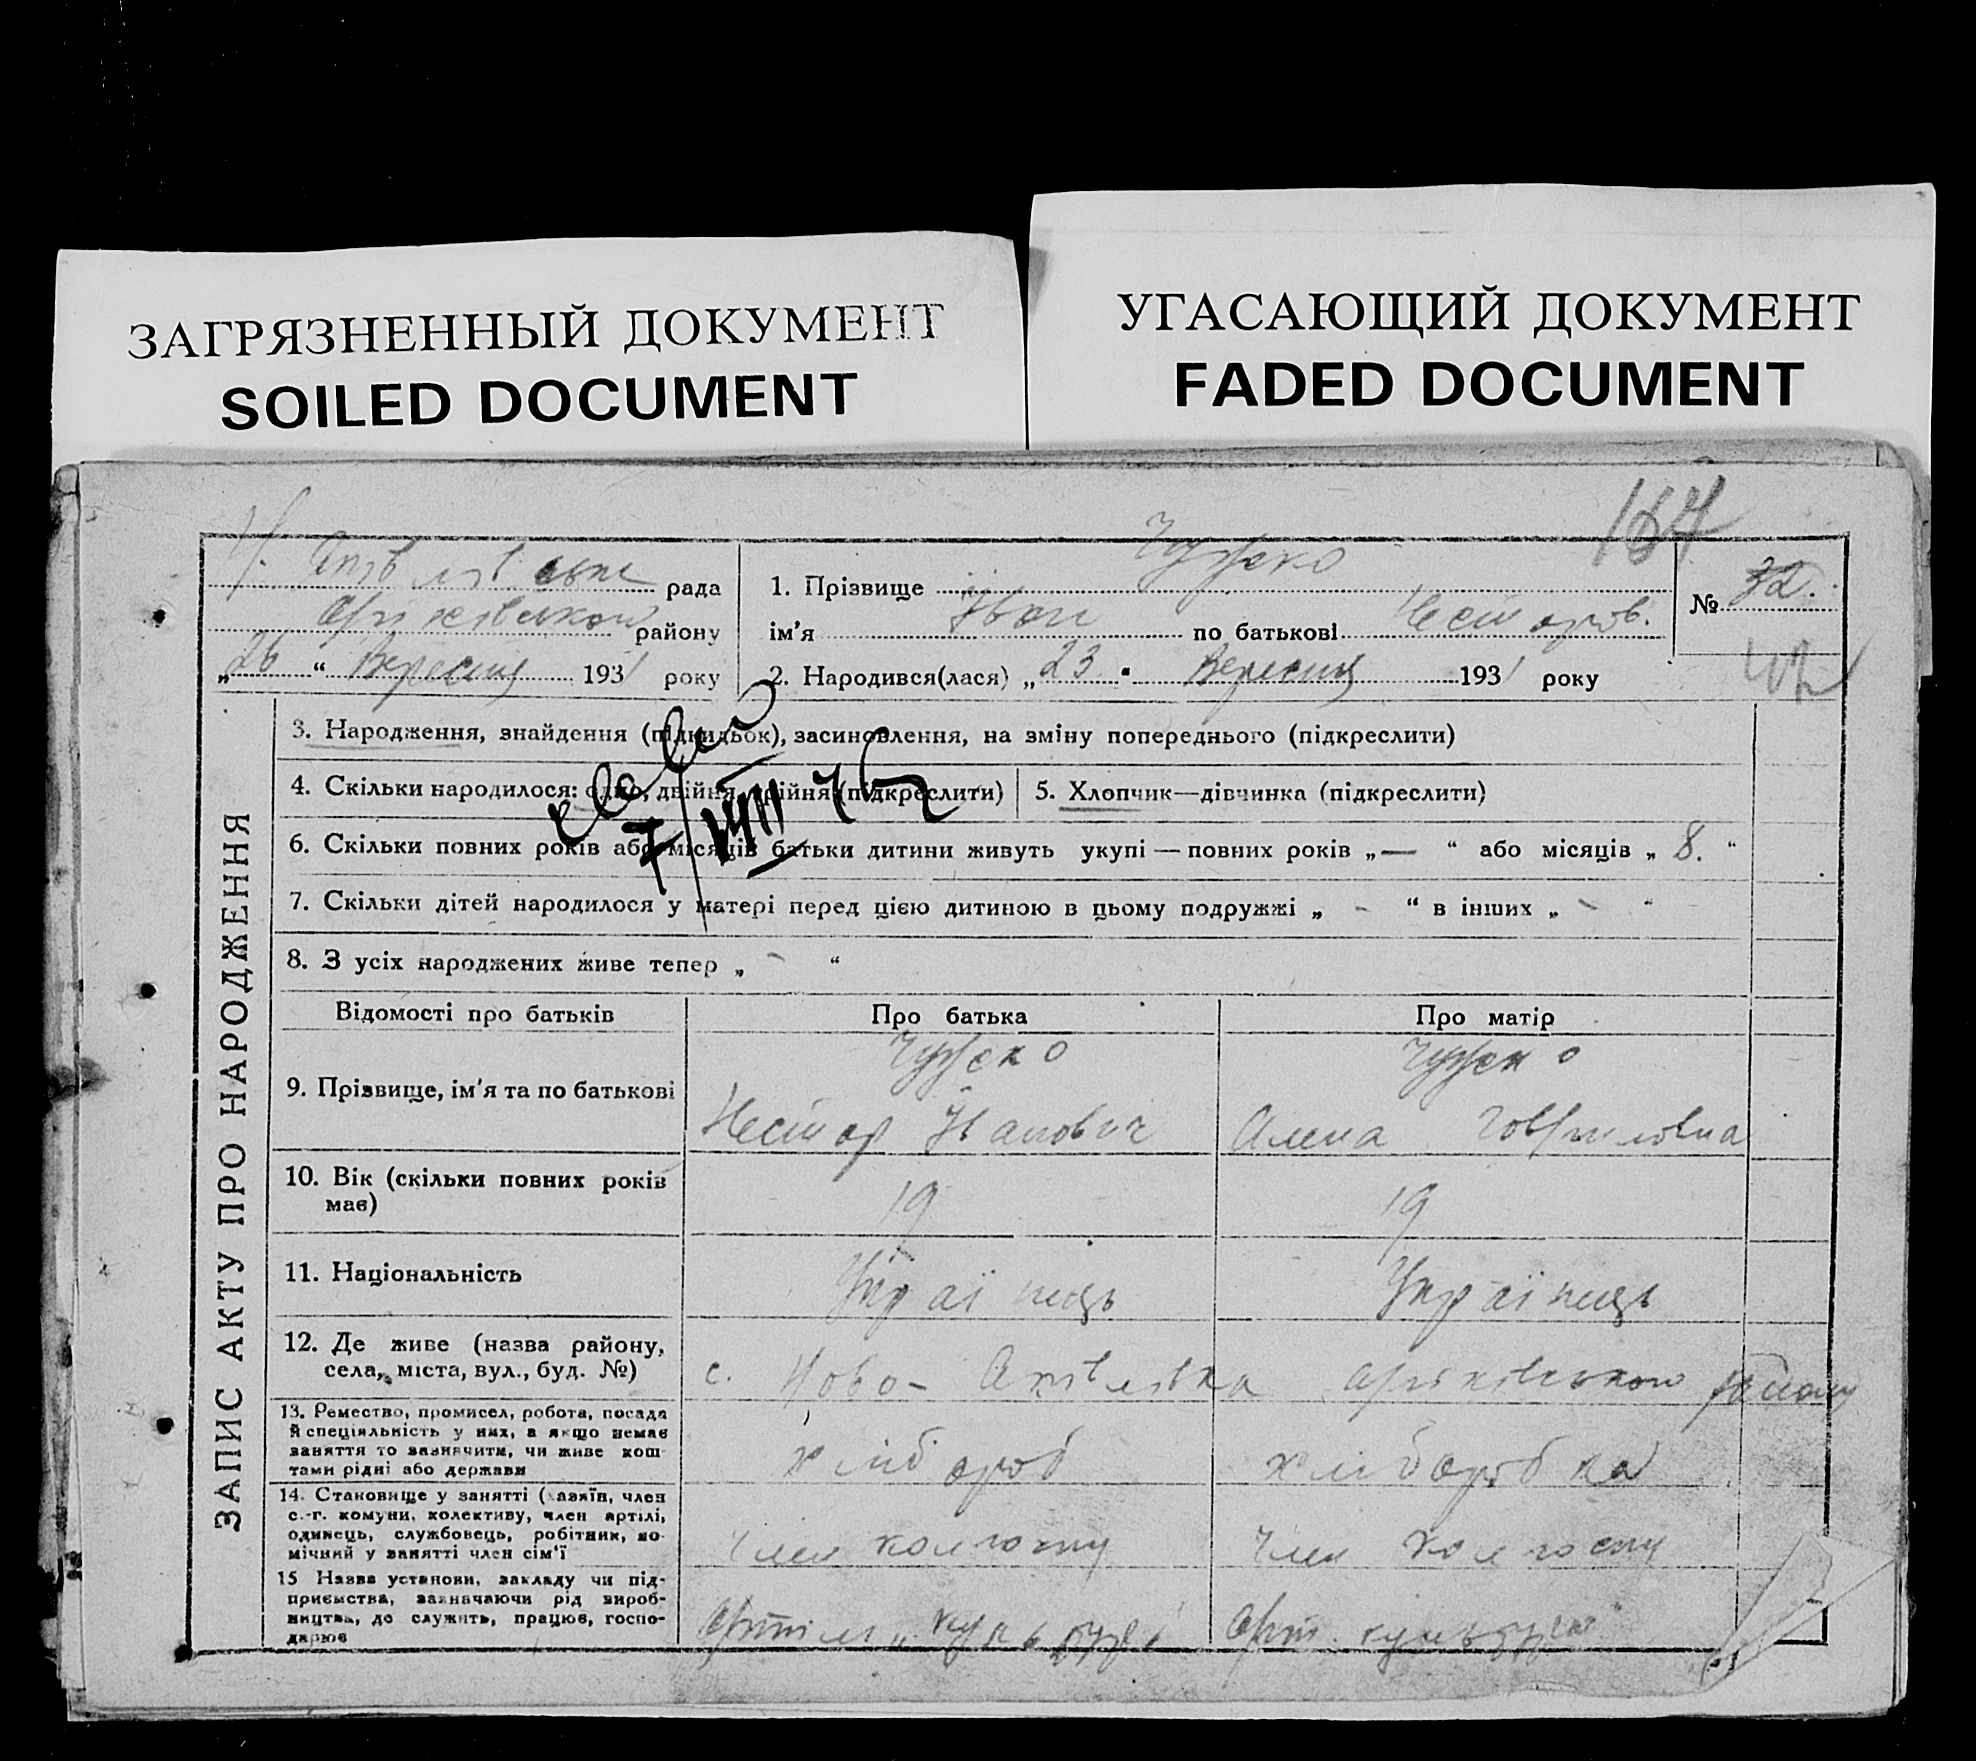 ЗАГРЯЗНЕННЫЙ ДОКУМЕНТ
SOILED DOCUMENT
УГАСАЮЩИЙ ДОКУМЕНТ
FADED DOCUMENT
рада
району
„26“ Вересня 1931 року
1. Прізвище
ім'я Іван по батькові Нестаров.
2. Народився(лася) „23" Вересня 1931 року
№ 32.
3. Народження, знайдення (підкидьок), засиновлення, на зміну попереднього (підкреслити)
4. Скільки народилося: одно, двійня, трійня (підкреслити)
5. Хлопчик—дівчинка (підкреслити)
6. Скільки повних років або місяців батьки дитини живуть укупі — повних років „—“ або місяців „8.“
7. Скільки дітей народилося у матері перед цією дитиною в цьому подружжі „ - “ в інших „ - “
8. З усіх народжених живе тепер „ - “
ЗАПИС АКТУ ПРО НАРОДЖЕННЯ
Відомості про батьків
Про батька
Про матір
9. Прізвище, ім'я та по батькові
Нестор Іванович
Алена
10. Вік (скільки повних років
має)
19
19
11. Національність
Українець
Українець
12. Де живе (назва району,
села, міста, вул., буд. №)
с. Ново- району
13. Ремество, промисел, робота, посада
й спеціяльність у них, а якщо немає
заняття то зазначити, чи живе кош-
тами рідні або держави
хлібороб
хліборобка
14. Становище у занятті (хазяїн, член
с.-г. комуни, колективу, член артілі,
одинець, службовець, робітник, по-
мічний у занятті член сім'ї
Член колгоспу
Член колгоспу
15 Назва установи, закладу чи під-
приємства, зазначаючи рід вироб-
ництва, де служить, працює, госпо-
дарює
Артіль
Арт.